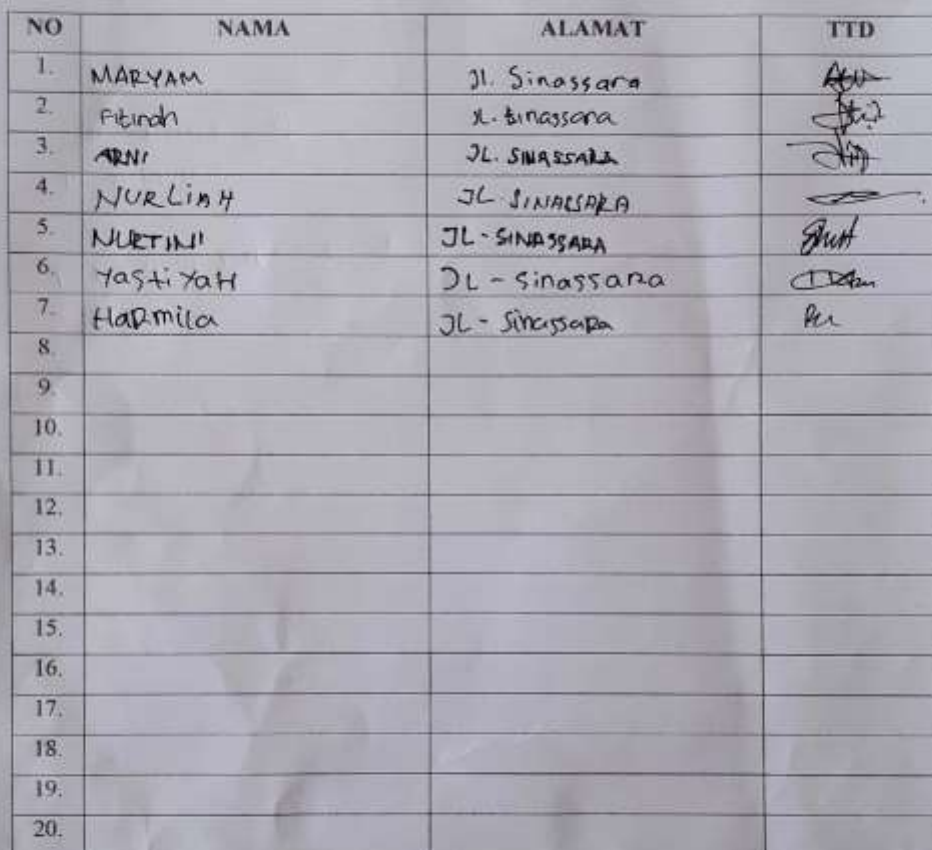 NO NAMA ALAMAT TTD
1. MARYAM Jl. Sinassara
2. Fitirah Jl. Sinassara
3. ARNI JL. SINASSARA
4. NURLIAH JL SINASSARA
5. NURTINI JL - SINASSARA
6. YastiYaH JL - Sinassara
7. HaRmila JL - SinassaRa
8.
9.
10.
11.
12.
13.
14.
15.
16.
17.
18.
19.
20.